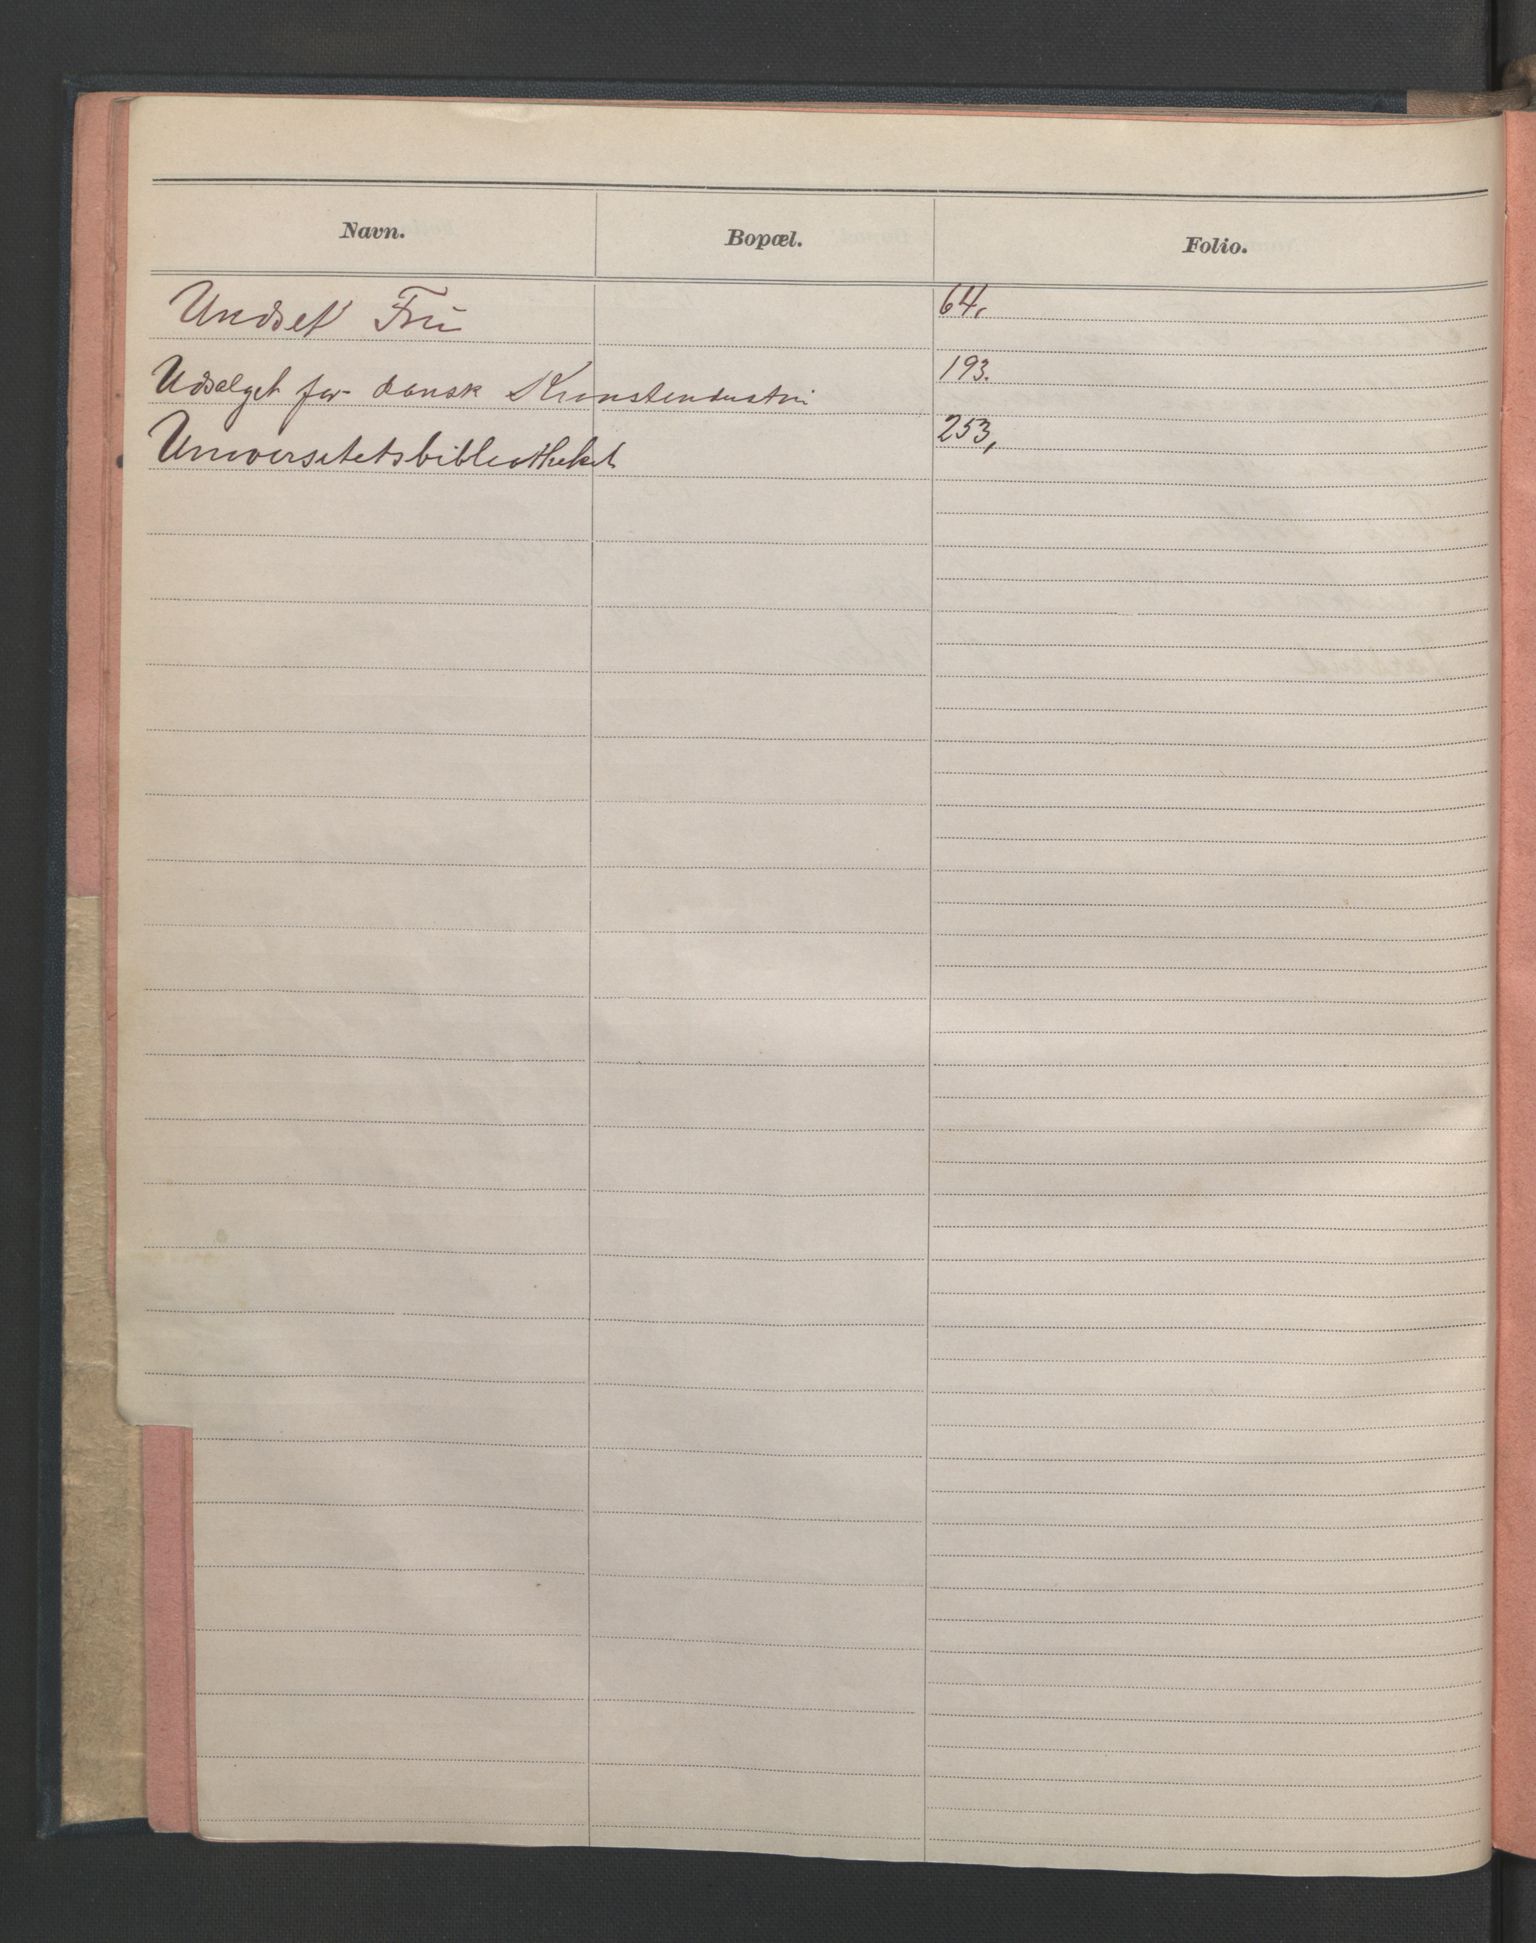 Navn. Bopæl. Folio.
Undset Fru 64,
Udsalget for dansk Kunstindustri 193.
Universitetsbibliotheket 253,